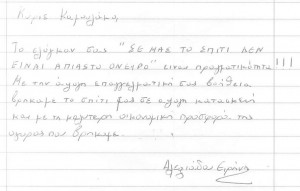 Κυριε Καμαλάκα
Το ελόγκαν σας "ΣΕ ΜΑΣ ΤΟ ΣΠΙΤΙ ΔΕΝ
ΕΙΝΑΙ ΑΠΙΑΣΤΟ ΟΝΕΙΡΟ" είναι πραγματικότητα!!!
Με την άψογη επαγγελματική σας βοήθεια
βρήκαμε το σπίτι μας σε άψογη κατασκευή
και με τη καλύτερη οικονομική προσφορά της
αγοράς που βρήκαμε.